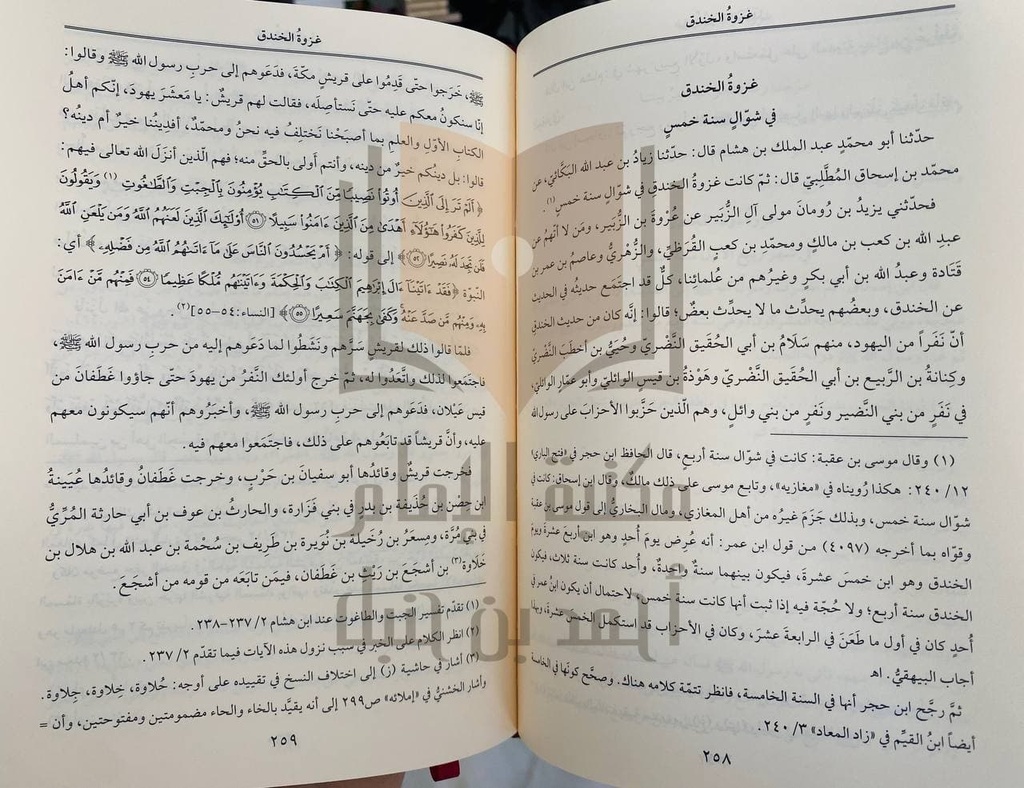 غزوةُ الخندق
غزوةُ الخندق
في شوّالٍ سنة خمسٍ
حدّثنا أبو محمّدٍ عبد الملك بن هشام قال: حدّثنا زيادُ بن عبد الله البَكّائيّ، عن
محمّد بن إسحاق المُطَّلِبيّ قال: ثمّ كانت غزوةُ الخندق في شوّالٍ سنة خمسٍ(١).
فحدّثني يزيدُ بن رُومانَ مولى آلِ الزُّبَير عن عُرْوةَ بن الزُّبَير، ومَن لا أتّهمُ عن
عبدِ الله بن كعب بن مالكٍ ومحمّدِ بن كعبٍ القُرَظيِّ، والزُّهْريُّ وعاصمُ بن عمر بن
قَتَادة وعبدُ الله بن أبي بكرٍ وغيرُهم من عُلمائِنا، كلٌّ قد اجتَمَع حديثُه في الحديث
عن الخندق، وبعضُهم يحدِّث ما لا يحدِّث بعضٌ؛ قالوا: إنَّه كان من حديث الخندقِ
أنّ نَفَراً من اليهود، منهم سَلَامُ بن أبي الحُقَيق النَّضْريُّ وحُيَيُّ بن أخطَبَ النَّضْريُّ
وكِنانةُ بن الرَّبيع بن أبي الحُقَيق النَّضْريُّ وهَوْذةُ بن قيسٍ الوائليُّ وأبو عمّارٍ الوائليُّ،
في نَفَرٍ من بني النَّضير ونَفَرٍ من بني وائلٍ، وهم الّذين حَزَّبوا الأحزابَ على رسول الله
(١) وقال موسى بن عقبة: كانت في شوّال سنة أربع، قال الحافظ ابن حجر في «فتح الباري»
١٢/ ٢٤٠: هكذا رُويناه في «مغازيه»، وتابع موسى على ذلك مالكٌ، وقال ابن إسحاق: كانت في
شوّال سنة خمس، وبذلك جَزَمَ غيرُه من أهل المغازي، ومال البخاريُّ إلى قول موسى بن عقبة
وقوّاه بما أخرجه (٤٠٩٧) من قول ابن عمر: أنه عُرِض يومَ أُحدٍ وهو ابن أربعَ عشرةَ ويومَ
الخندق وهو ابن خمسَ عشرةَ، فيكون بينهما سنةٌ واحدةٌ، وأُحد كانت سنة ثلاث، فيكون
الخندق سنة أربع؛ ولا حُجّة فيه إذا ثبت أنها كانت سنة خمس، لاحتمال أن يكون ابنُ عمر في
أُحدٍ كان في أول ما طَعَنَ في الرابعةَ عشرَ، وكان في الأحزاب قد استكمل الخمسَ عشرةَ، وبهذا
أجاب البيهقيُّ. اهـ
ثمَّ رجَّح ابن حجر أنها في السنة الخامسة، فانظر تتمّة كلامه هناك. وصحَّح كونَها في الخامسة
أيضاً ابنُ القيِّم في «زاد المعاد» ٣/ ٢٤٠.
٢٥٨
غزوةُ الخندق
ﷺ، خَرَجوا حتّى قَدِمُوا على قريشٍ مكّةَ، فدَعَوهم إلى حربِ رسول الله ﷺ وقالوا:
إنّا سنكونُ معكم عليه حتّى نَستأصِلَه، فقالت لهم قريشٌ: يا مَعشَرَ يهودَ، إنّكم أهلُ
الكتابِ الأوّلِ والعلمِ بما أصبَحْنا نَختلِفُ فيه نحنُ ومحمّدٌ، أفدِينُنا خيرٌ أم دينُه؟
قالوا: بل دينُكم خيرٌ من دينِه، وأنتم أولى بالحقِّ منه؛ فهم الّذين أنزَلَ الله تعالى فيهم:
﴿أَلَمْ تَرَ إِلَى الَّذِينَ أُوتُوا نَصِيبًا مِنَ الْكِتَابِ يُؤْمِنُونَ بِالْجِبْتِ وَالطَّاغُوتِ(١) وَيَقُولُونَ
لِلَّذِينَ كَفَرُوا هَؤُلَاءِ أَهْدَى مِنَ الَّذِينَ ءَامَنُوا سَبِيلًا ٥١ أُولَئِكَ الَّذِينَ لَعَنَهُمُ اللَّهُ وَمَن يَلْعَنِ اللَّهُ
فَلَن تَجِدَ لَهُ نَصِيرًا ٥٢﴾ إلى قوله: ﴿أَمْ يَحْسُدُونَ النَّاسَ عَلَى مَا ءَاتَاهُمُ اللَّهُ مِن فَضْلِهِ﴾ أي:
النبوّة ﴿فَقَدْ ءَاتَيْنَا ءَالَ إِبْرَاهِيمَ الْكِتَابَ وَالْحِكْمَةَ وَءَاتَيْنَاهُم مُّلْكًا عَظِيمًا ٥٤ فَمِنْهُم مَّنْ ءَامَنَ
بِهِ وَمِنْهُم مَّن صَدَّ عَنْهُ وَكَفَى بِجَهَنَّمَ سَعِيرًا ٥٥﴾ [النساء:٥٤-٥٥](٢).
فلمّا قالوا ذلك لقريشٍ سَرَّهم ونَشَطُوا لما دَعَوهم إليه من حربِ رسول الله ﷺ،
فاجتمَعوا لذلك واتَّعَدُوا له، ثمّ خرج أولئك النَّفرُ من يهودَ حتّى جاؤوا غَطَفانَ من
قيس عَيْلان، فدَعَوهم إلى حربِ رسول الله ﷺ، وأخبَرُوهم أنّهم سيكونون معهم
عليه، وأنَّ قريشاً قد تابَعُوهم على ذلك، فاجتَمَعوا معهم فيه.
فخرجت قريشٌ وقائدُها أبو سفيانَ بن حَرْبٍ، وخرجت غَطَفانُ وقائدُها عُيَينةُ
ابن حِصْن بن حُذَيفة بن بدرٍ في بني فَزَارة، والحارثُ بن عوف بن أبي حارثة المُرِّيُّ
في بني مُرَّة، ومِسعَرُ بن رُخَيلة بن نُوَيرة بن طَريف بن سُحْمة بن عبد الله بن هلال بن
خَلَاوة(٣) بن أشجَعَ بن رَيْثِ بن غَطَفان، فيمَن تابَعَه من قومه من أشجَعَ.
(١) تقدّم تفسير الجبت والطاغوت عند ابن هشام ٢/ ٢٣٧-٢٣٨.
(٢) انظر الكلام على الخبر في سبب نزول هذه الآيات فيما تقدّم ٢/ ٢٣٧.
(٣) أشار في حاشية (ز) إلى اختلاف النسخ في تقييده على أوجه: حُلاوة، خِلاوة، جِلاوة.
وأشار الخشنيُّ في «إملائه» ص٢٩٩ إلى أنه يقيَّد بالخاء والحاء مضمومتين ومفتوحتين، وأن =
٢٥٩
مكتبة الإمام
أحمد بن حنبل